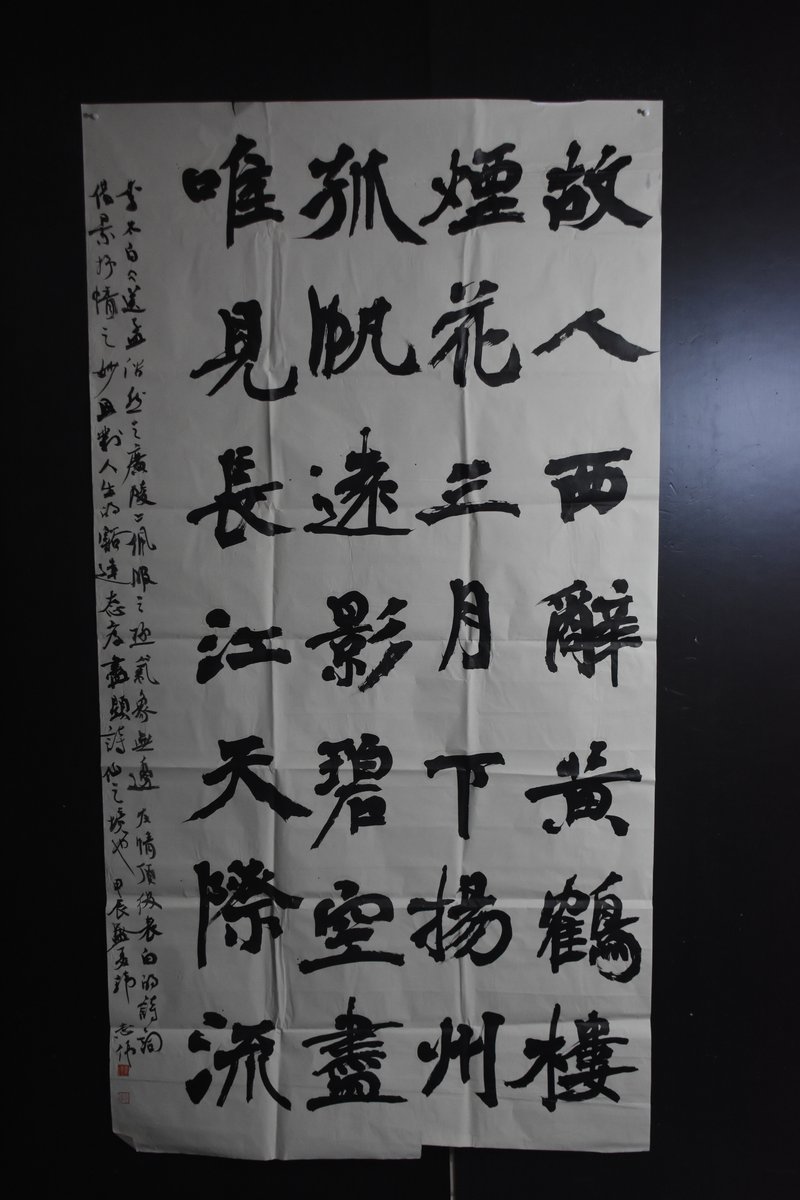 故人西辭黃鶴樓
煙花三月下揚州
孤帆遠影碧空盡
唯見長江天際流
李太白送孟浩然之廣陵佩服之極氣象無邊友情頂級表白的詩句
借景抒情之妙且對人生的豁達态度盡顯詩仙之境也甲辰孟夏 志伟